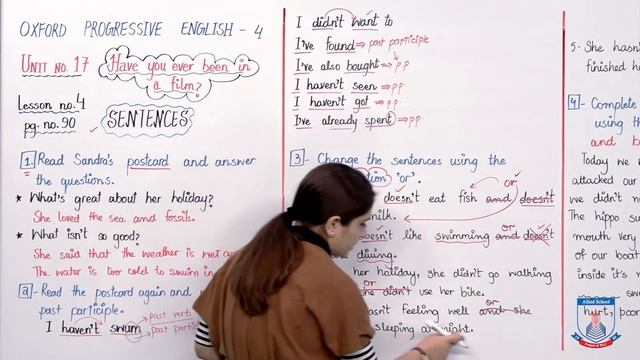 OXFORD PROGRESSIVE ENGLISH - 4
UNIT NO. 17
Have you ever been in
a film?
Lesson no. 4
pg: no. 90
SENTENCES
1 Read Sandra's postcard and answer
the questions.
* What's great about her holiday?
She loved the sea and fossils.
* What isn't so good?
She said that the weather is wet
The water is too cold to swim in
2 - Read the postcard again and
past participle.
I haven't swum
past verb
past
I didn't want to
I've found ⇒ past participle
I've also bought ⇒ p.p
I haven't seen ⇒ p.p
I haven't got ⇒ p.p
I've already spent ⇒ p.p
3 - Change the sentences using the
'or'.
doesn't eat fish and doesn't
or
milk.
doesn't like swimming and doesn't
or
diving.
her holiday, she didn't go walking
or
didn't use her bike.
feeling well and she
or
sleeping at night.
5- She hasn't
finished h
4 - Complete
using th
and b
Today we
attacked our
we didn't n
The hippo su
mouth very
of our boat
inside it's
hurt, poor
Allied School